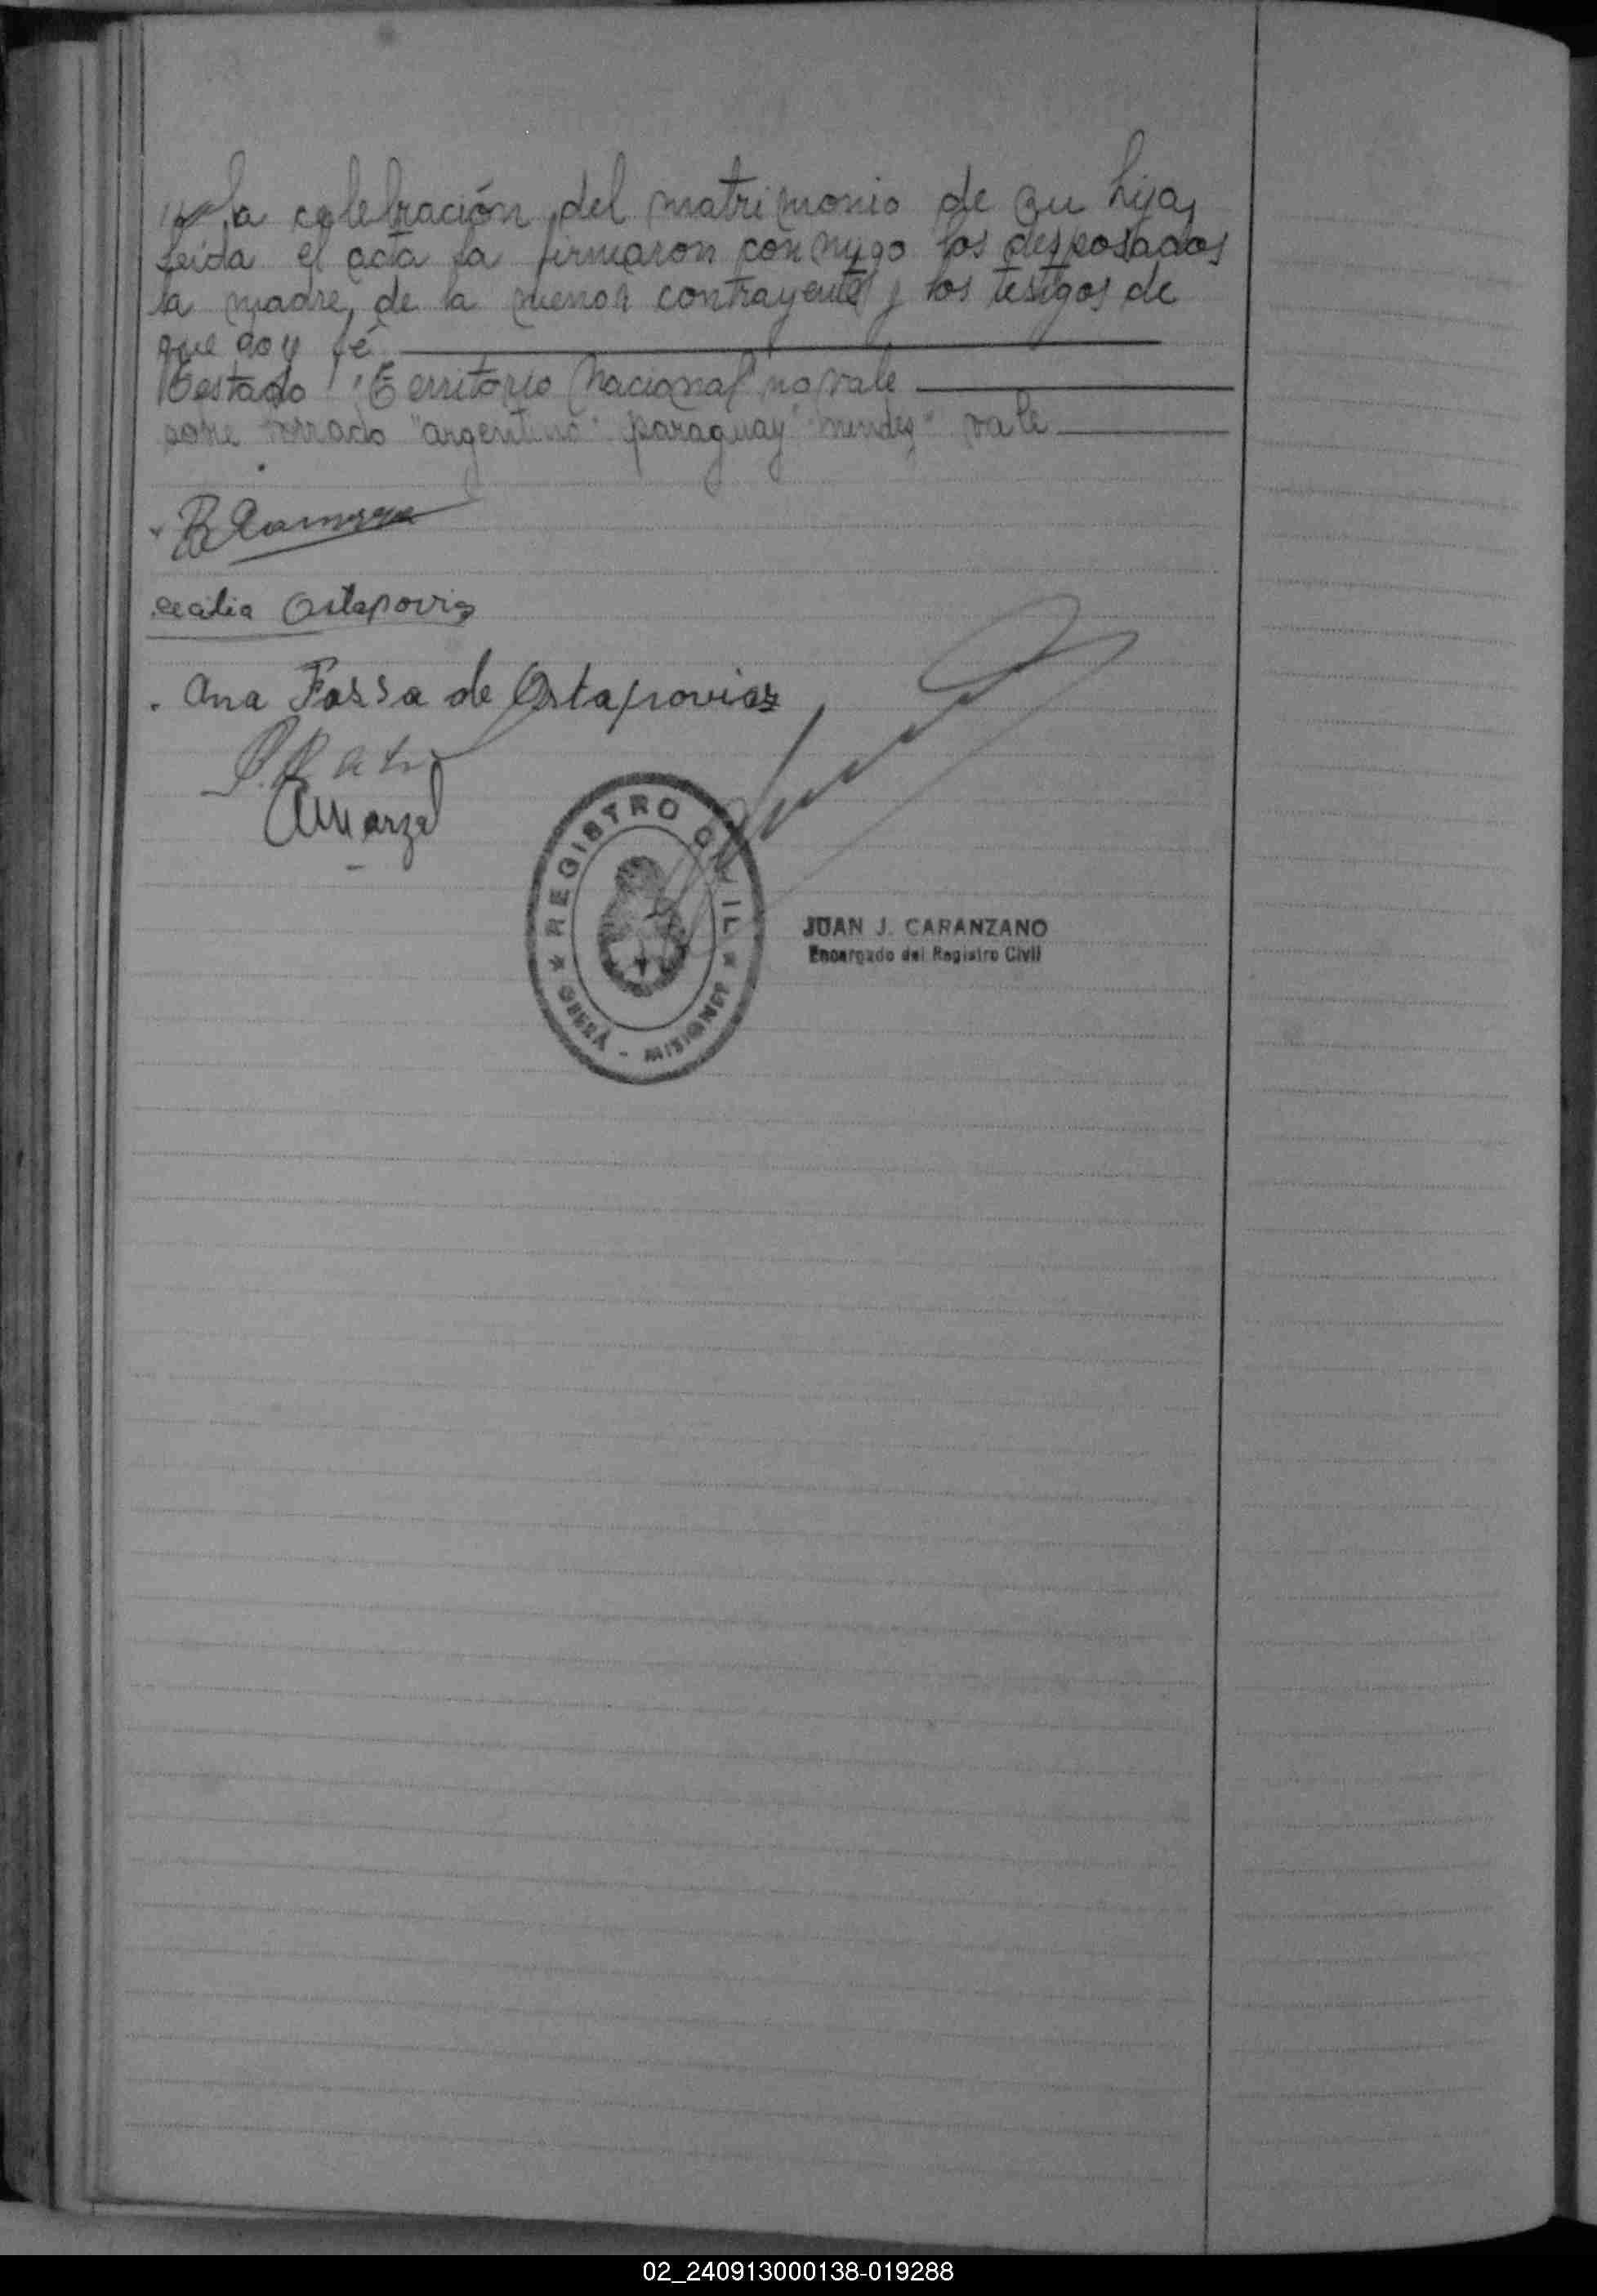 la celebración del matrimonio de su hija,
leida el acta la firmaron conmigo los desposados
la madre, de la menor contrayente y los testigos de
que doy fé
Testado "Territorio Nacional" no vale
sobre borrado "argentino" "paraguay" "mendez" vale
cecilia Ostapoviz
Ana Fassa de Ostapoviez
REGISTRO CIVIL
OBERÁ - MISIONES
JUAN J. CARANZANO
Encargado del Registro Civil
02_240913000138-019288